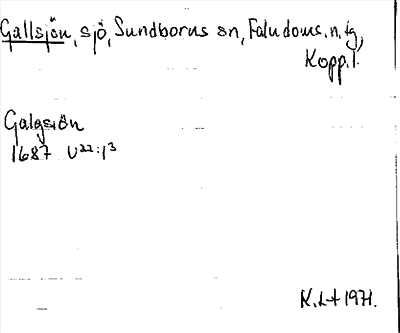 Gallsjön, sjö, Sundborns sn, Faludoms. n. tg,
Kopp. l.
Galgsiön
1687 U²²:1³
K.Lt 1971.